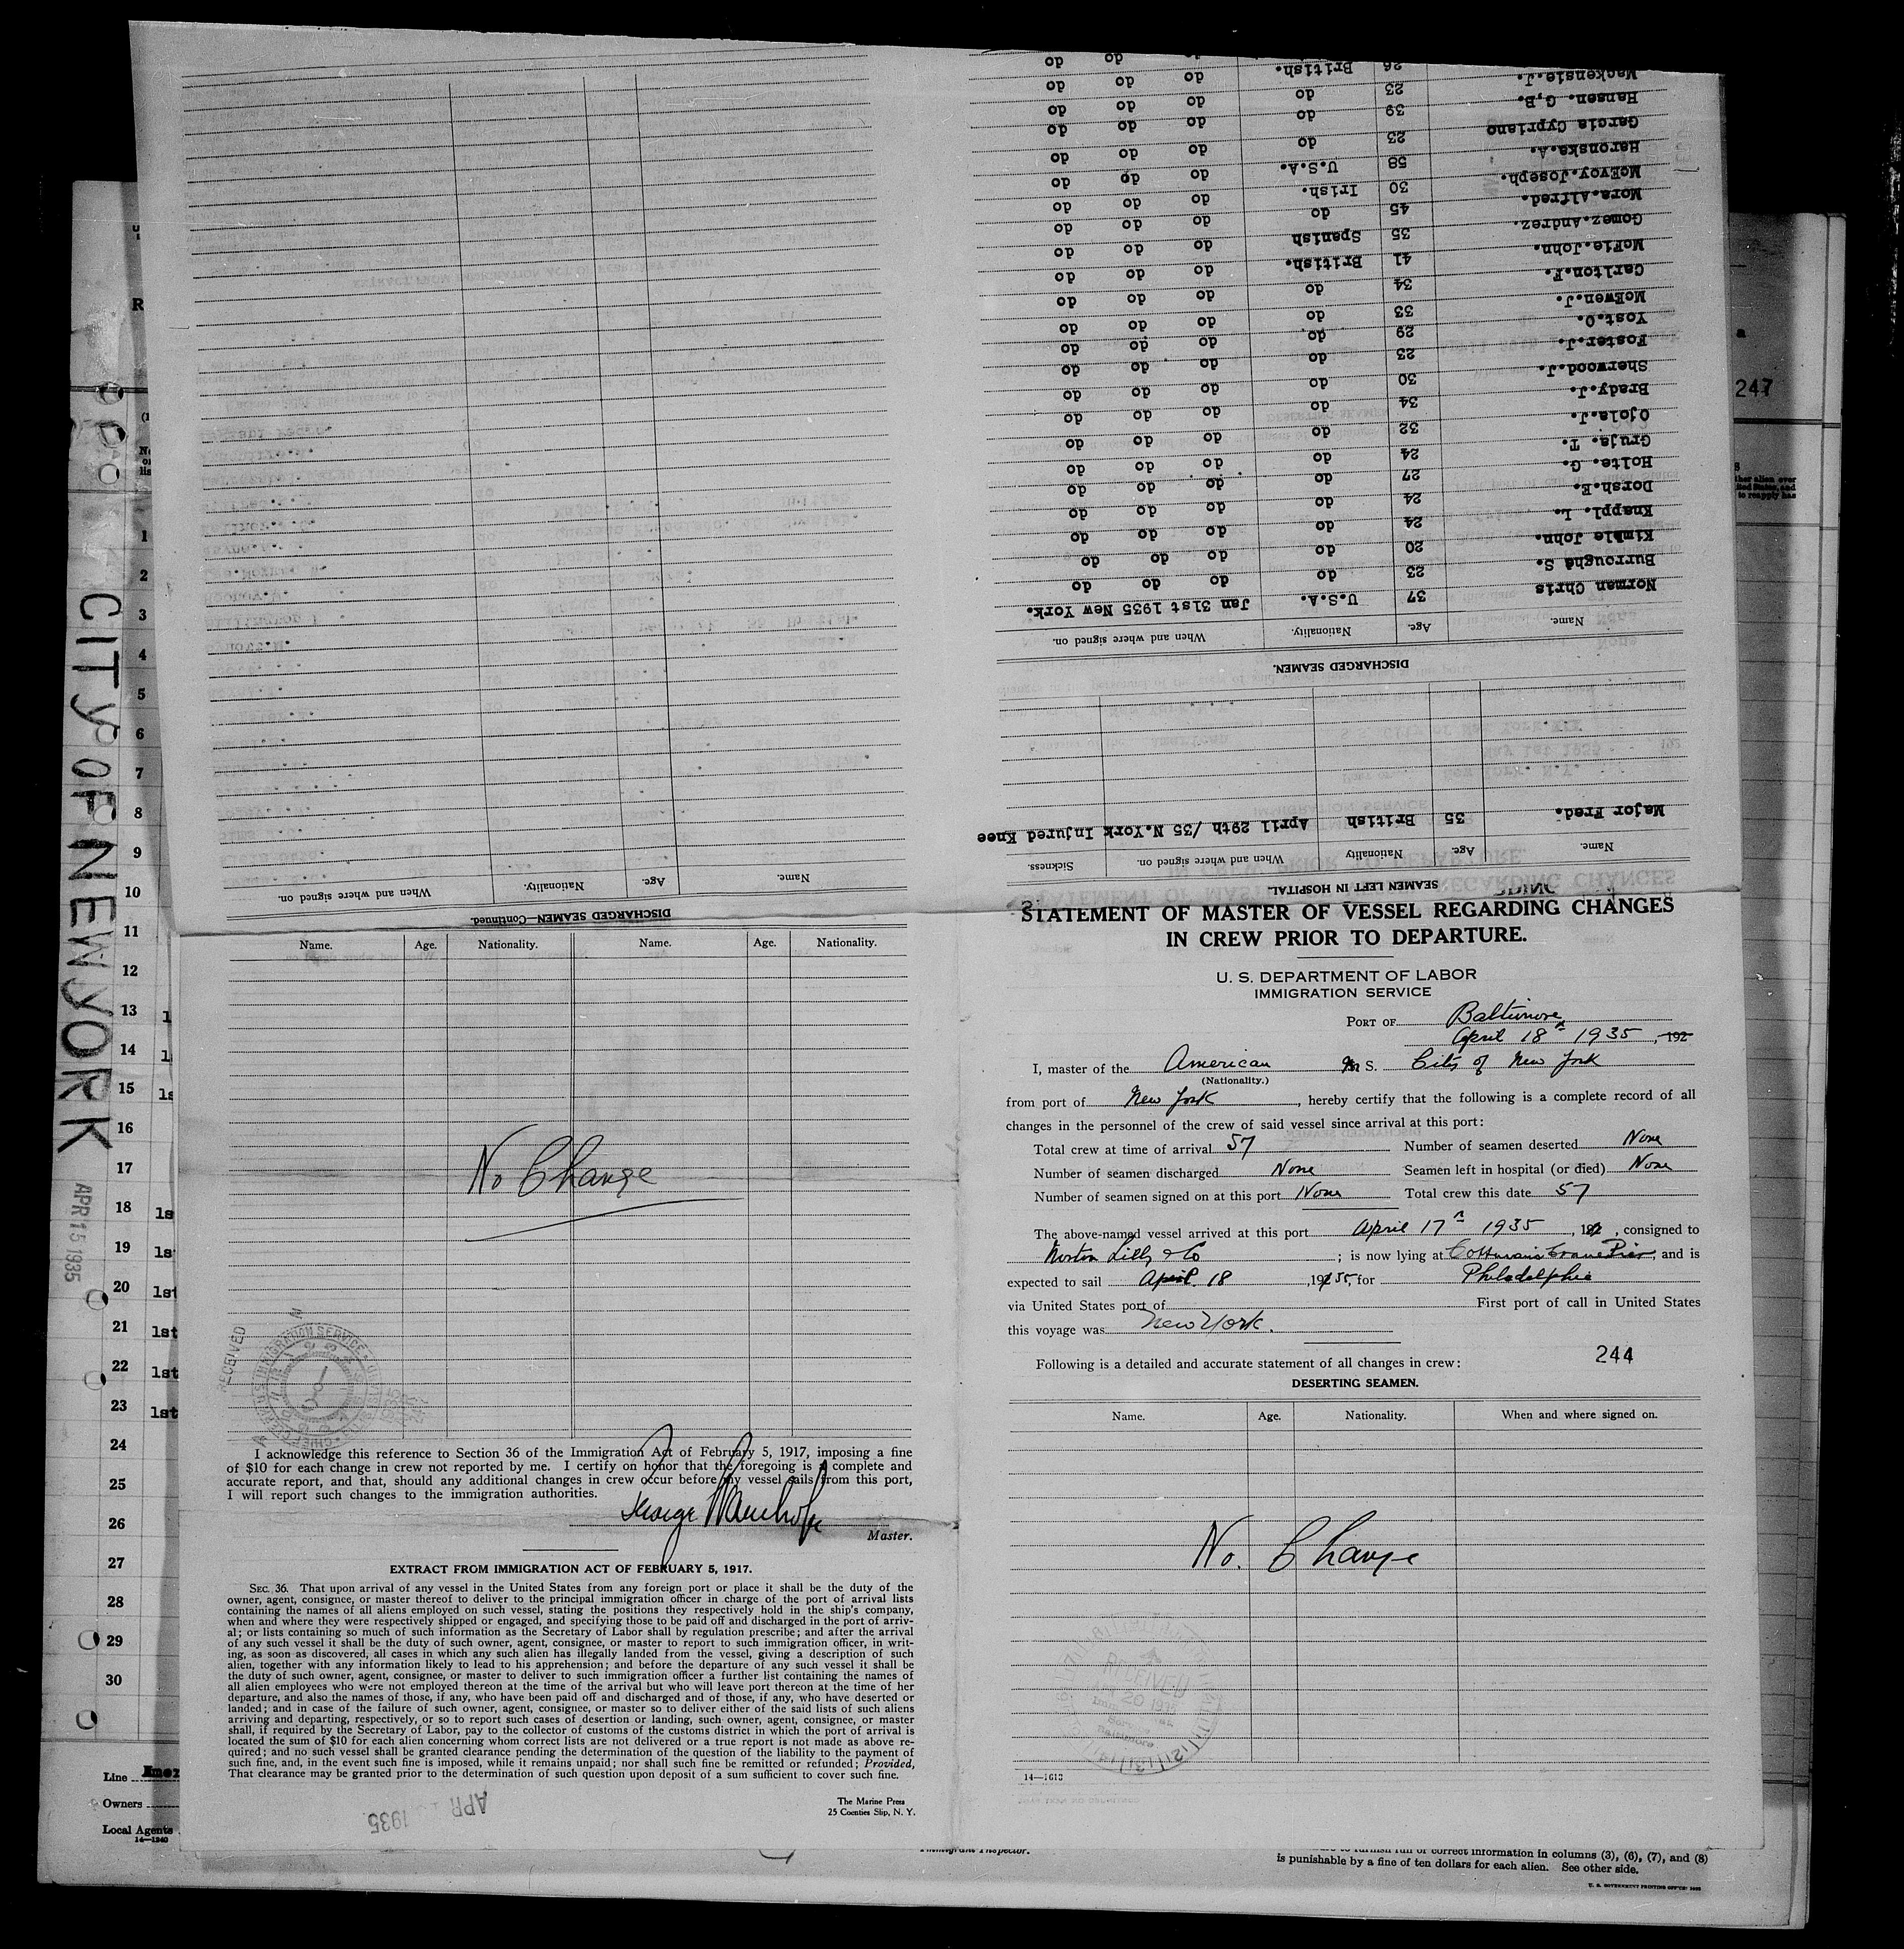 CITY OF NEW YORK
APR 15 1935
247
SEAMEN LEFT IN HOSPITAL
Name. Age. Nationality When and where signed on. Sickness.
Major Fred. 35 British April 29th /35 N.York Injured Knee
DISCHARGED SEAMEN.
Name. Age. Nationality. When and where signed on.
Norman Chris 37 U.S.A. Jan 31st 1935 New York.
Burroughs S. 23 do do do do
Kimble John. 20 do do do do
Knappl. L. 24 do do do do
Dorsh.E. 24 do do do do
Holte. G. 27 do do do do
Gruja. T. 24 do do do do
Ojola.J. 32 do do do do
Brady.J. 34 do do do do
Sherwood.J. 30 do do do do
Foster.J. 23 do do do do
Yost.O. 29 do do do do
McEwen.J. 33 do do do do
Carlton.F. 34 do do do do
McFie.John. 41 British. do do do
Gomez.Andrez. 35 Spanish do do do
Mora.Alfred. 45 do do do do
McEvoy.Joseph. 30 Irish. do do do
Haronska.A. 58 U.S.A. do do do
Garcia Cypriano 23 do do do do
Hansen. G,B. 39 do do do do
Mackensie.J. 23 do do do do
26 British. do do
DISCHARGED SEAMEN—Continued.
Name. Age. Nationality. When and where signed on.
Name. Age. Nationality. Name. Age. Nationality.
No Change
RECEIVED
I acknowledge this reference to Section 36 of the Immigration Act of February 5, 1917, imposing a fine
of $10 for each change in crew not reported by me. I certify on honor that the foregoing is a complete and
accurate report, and that, should any additional changes in crew occur before my vessel sails from this port,
I will report such changes to the immigration authorities.
George
Master.
EXTRACT FROM IMMIGRATION ACT OF FEBRUARY 5, 1917.
SEC. 36. That upon arrival of any vessel in the United States from any foreign port or place it shall be the duty of the
owner, agent, consignee, or master thereof to deliver to the principal immigration officer in charge of the port of arrival lists
containing the names of all aliens employed on such vessel, stating the positions they respectively hold in the ship's company,
when and where they were respectively shipped or engaged, and specifying those to be paid off and discharged in the port of arriv-
al; or lists containing so much of such information as the Secretary of Labor shall by regulation prescribe; and after the arrival
of any such vessel it shall be the duty of such owner, agent, consignee, or master to report to such immigration officer, in writ-
ing, as soon as discovered, all cases in which any such alien has illegally landed from the vessel, giving a description of such
alien, together with any information likely to lead to his apprehension; and before the departure of any such vessel it shall be
the duty of such owner, agent, consignee, or master to deliver to such immigration officer a further list containing the names of
all alien employees who were not employed thereon at the time of the arrival but who will leave port thereon at the time of her
departure, and also the names of those, if any, who have been paid off and discharged and of those, if any, who have deserted or
landed; and in case of the failure of such owner, agent, consignee, or master so to deliver either of the said lists of such aliens
arriving and departing, respectively, or so to report such cases of desertion or landing, such owner, agent, consignee, or master
shall, if required by the Secretary of Labor, pay to the collector of customs of the customs district in which the port of arrival is
located the sum of $10 for each alien concerning whom correct lists are not delivered or a true report is not made as above re-
quired; and no such vessel shall be granted clearance pending the determination of the question of the liability to the payment of
such fine, and, in the event such fine is imposed, while it remains unpaid; nor shall such fine be remitted or refunded; Provided,
That clearance may be granted prior to the determination of such question upon deposit of a sum sufficient to cover such fine.
APR 1935
The Marine Press
25 Coenties Slip, N. Y.
STATEMENT OF MASTER OF VESSEL REGARDING CHANGES
IN CREW PRIOR TO DEPARTURE.
U. S. DEPARTMENT OF LABOR
IMMIGRATION SERVICE
PORT OF Baltimore
April 18th 1935, 192
I, master of the American M S. City of New York
(Nationality.)
from port of New York, hereby certify that the following is a complete record of all
changes in the personnel of the crew of said vessel since arrival at this port:
Total crew at time of arrival 57 Number of seamen deserted None
Number of seamen discharged None Seamen left in hospital (or died) None
Number of seamen signed on at this port None Total crew this date 57
The above-named vessel arrived at this port April 17th 1935, 192, consigned to
Norton Lilly & Co; is now lying at Cottman's Crane Pier, and is
expected to sail April 18, 1935, for Philadelphia
via United States port of First port of call in United States
this voyage was New York.
244
Following is a detailed and accurate statement of all changes in crew:
DESERTING SEAMEN.
Name. Age. Nationality. When and where signed on.
No. Change
RECEIVED
20 1935
Baltimore
14—1613
1
2
3
4
5
6
7
8
9
10
11
12
13
14
15
16
17
18 1s
19 1s
20 1st
21 1st
22 1st
23 1st
24
25
26
27
28
29
30
Line Amer
Owners
Local Agents
14—1240
Immigrant Inspector.
to furnish full or correct information in columns (3), (6), (7), and (8)
is punishable by a fine of ten dollars for each alien. See other side.
U. S. GOVERNMENT PRINTING OFFICE